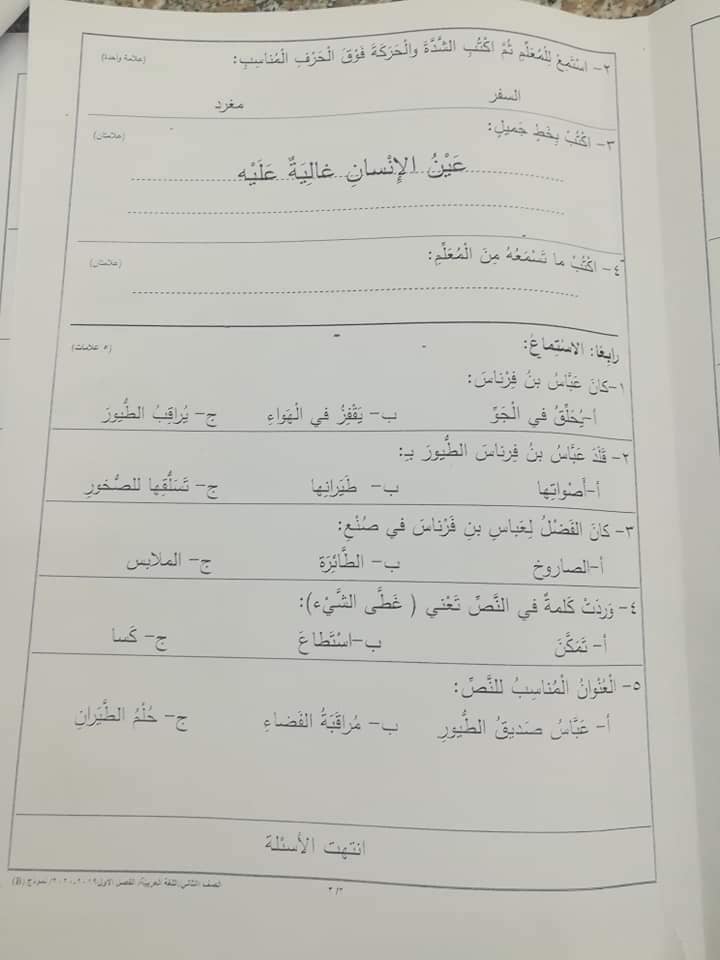 ٢- اسْتَمِعْ لِلْمُعَلِّمِ ثُمَّ اكْتُبِ الشَّدَّةَ والْحَرَكَةَ فَوْقَ الْحَرْفِ الْمُناسِبِ: (علامة واحدة)
السفر مغرد
٣- اكْتُبْ بِخَطٍ جَميلٍ: (علامتان)
عَيْنُ الإِنْسانِ غالِيَةٌ عَلَيْه
٤- اكْتُبْ ما تَسْمَعُهُ مِنَ الْمُعَلِّمِ: (علامتان)
رابعًا: الاسْتِماعُ: (٥ علامات)
١-كانَ عَبَّاسُ بنُ فِرْناسَ:
أ-يُحَلِّقُ في الْجَوِّ ب- يَقْفِزُ في الْهَواءِ ج- يُراقِبُ الطُّيورَ
٢- قَلَّدَ عَبَّاسُ بنُ فِرناسَ الطُّيورَ بـِ:
أ-أَصْواتِها ب- طَيَرانِها ج- تَسَلُّقِها للصُّخورِ
٣- كانَ الفَضْلُ لِعَباسِ بنِ فَرْناسَ في صُنْعِ:
أ-الصاروخ ب- الطَّائِرَة ج- الملابس
٤- وَرَدَتْ كَلمةٌ في النَّصِّ تَعْني ( غَطَّى الشَّيْء):
أ- تَمَكَّنَ ب-اسْتَطاعَ ج- كَسا
٥- الْعُنْوانُ الْمُناسِبُ للنَّصِّ:
أ- عَبَّاسُ صَديقُ الطُّيورِ ب- مُراقَبَةُ الفَضاءِ ج- حُلْمُ الطَّيَرانِ
انتهت الأسئلة
الصف الثاني/اللغة العربية/ الفصل الاول٢٠١٩-٢٠٢٠/ نموذج (B)
٣/٣